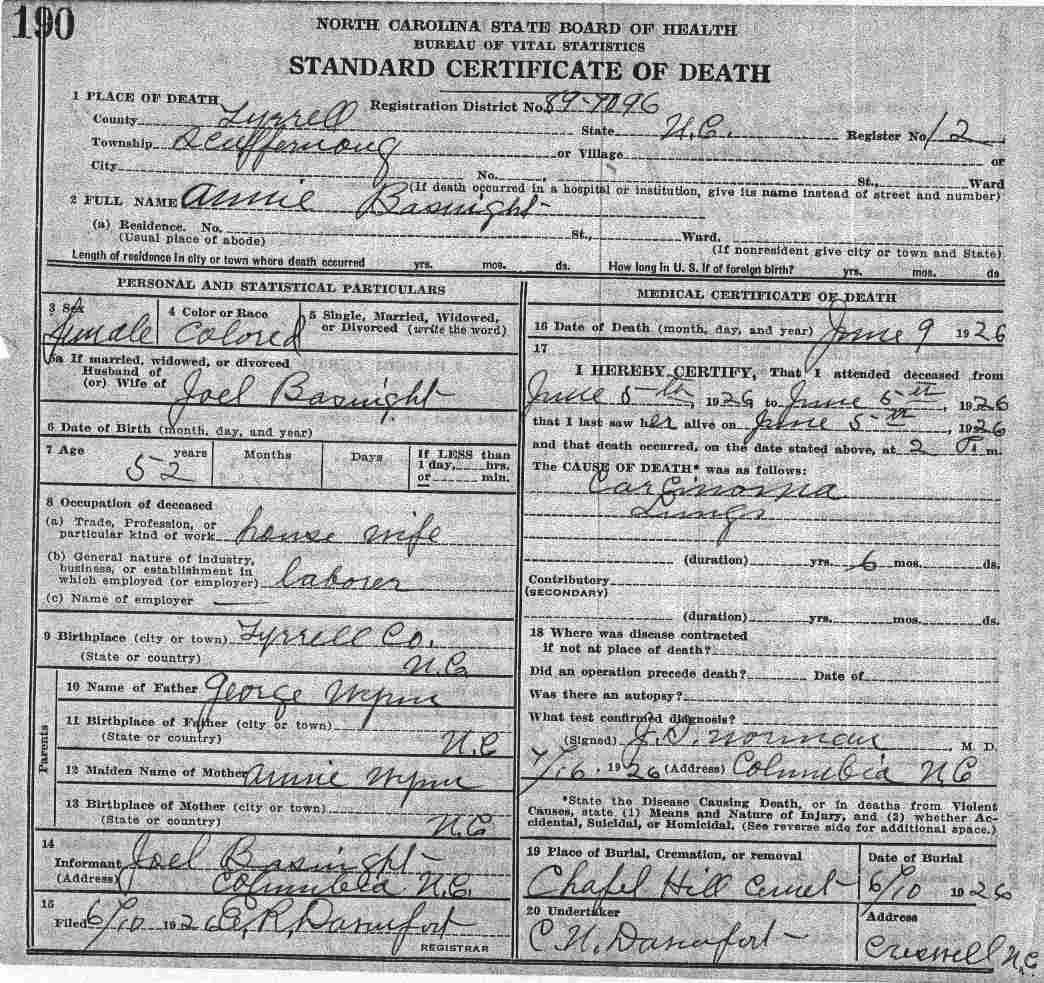 190
NORTH CAROLINA STATE BOARD OF HEALTH
BUREAU OF VITAL STATISTICS
STANDARD CERTIFICATE OF DEATH
1 PLACE OF DEATH Registration District No. 89-7096
County Tyrrell State N.C. Register No 12
Township Scuffernong or Village or
City No. St., Ward
(If death occurred in a hospital or institution, give its name instead of street and number)
2 FULL NAME Annie Basnight
(a) Residence. No. St., Ward.
(Usual place of abode) (If nonresident give city or town and State)
Length of residence in city or town where death occurred yrs. mos. ds. How long in U. S. if of foreign birth? yrs. mos. ds
PERSONAL AND STATISTICAL PARTICULARS
3 Sex 4 Color or Race 5 Single, Married, Widowed, or Divorced (write the word)
Female Colored
5a If married, widowed, or divorced
Husband of
(or) Wife of Joel Basnight
6 Date of Birth (month, day, and year)
7 Age years Months Days If LESS than
52 1 day, hrs.
or min.
8 Occupation of deceased
(a) Trade, Profession, or
particular kind of work house wife
(b) General nature of industry,
business, or establishment in
which employed (or employer) laborer
(c) Name of employer
9 Birthplace (city or town) Tyrrell Co.
(State or country) N.C.
Parents
10 Name of Father George Wynn
11 Birthplace of Father (city or town)
(State or country) N.C
12 Maiden Name of Mother Annie Wynn
13 Birthplace of Mother (city or town)
(State or country) N.C
14
Informant Joel Basnight
(Address) Columbia N.C.
15
Filed 6/10 1926 E. R. Davenport
REGISTRAR
MEDICAL CERTIFICATE OF DEATH
16 Date of Death (month, day, and year) June 9 1926
17
I HEREBY CERTIFY, That I attended deceased from
June 5th, 1926, to June 5th, 1926
that I last saw her alive on June 5th, 1926
and that death occurred, on the date stated above, at 2 P. m.
The CAUSE OF DEATH* was as follows:
Carcinoma
Lungs
(duration) yrs. 6 mos. ds.
Contributory
(SECONDARY)
(duration) yrs. mos. ds.
18 Where was disease contracted
if not at place of death?
Did an operation precede death? Date of
Was there an autopsy?
What test confirmed diagnosis?
(Signed) Norman M. D.
7/16. 1926 (Address) Columbia N C
*State the Disease Causing Death, or in deaths from Violent
Causes, state (1) Means and Nature of Injury, and (2) whether Ac-
cidental, Suicidal, or Homicidal. (See reverse side for additional space.)
19 Place of Burial, Cremation, or removal Date of Burial
Chapel Hill Cemet 6/10 1926
20 Undertaker Address
C N. Davenport Creswell N.C.